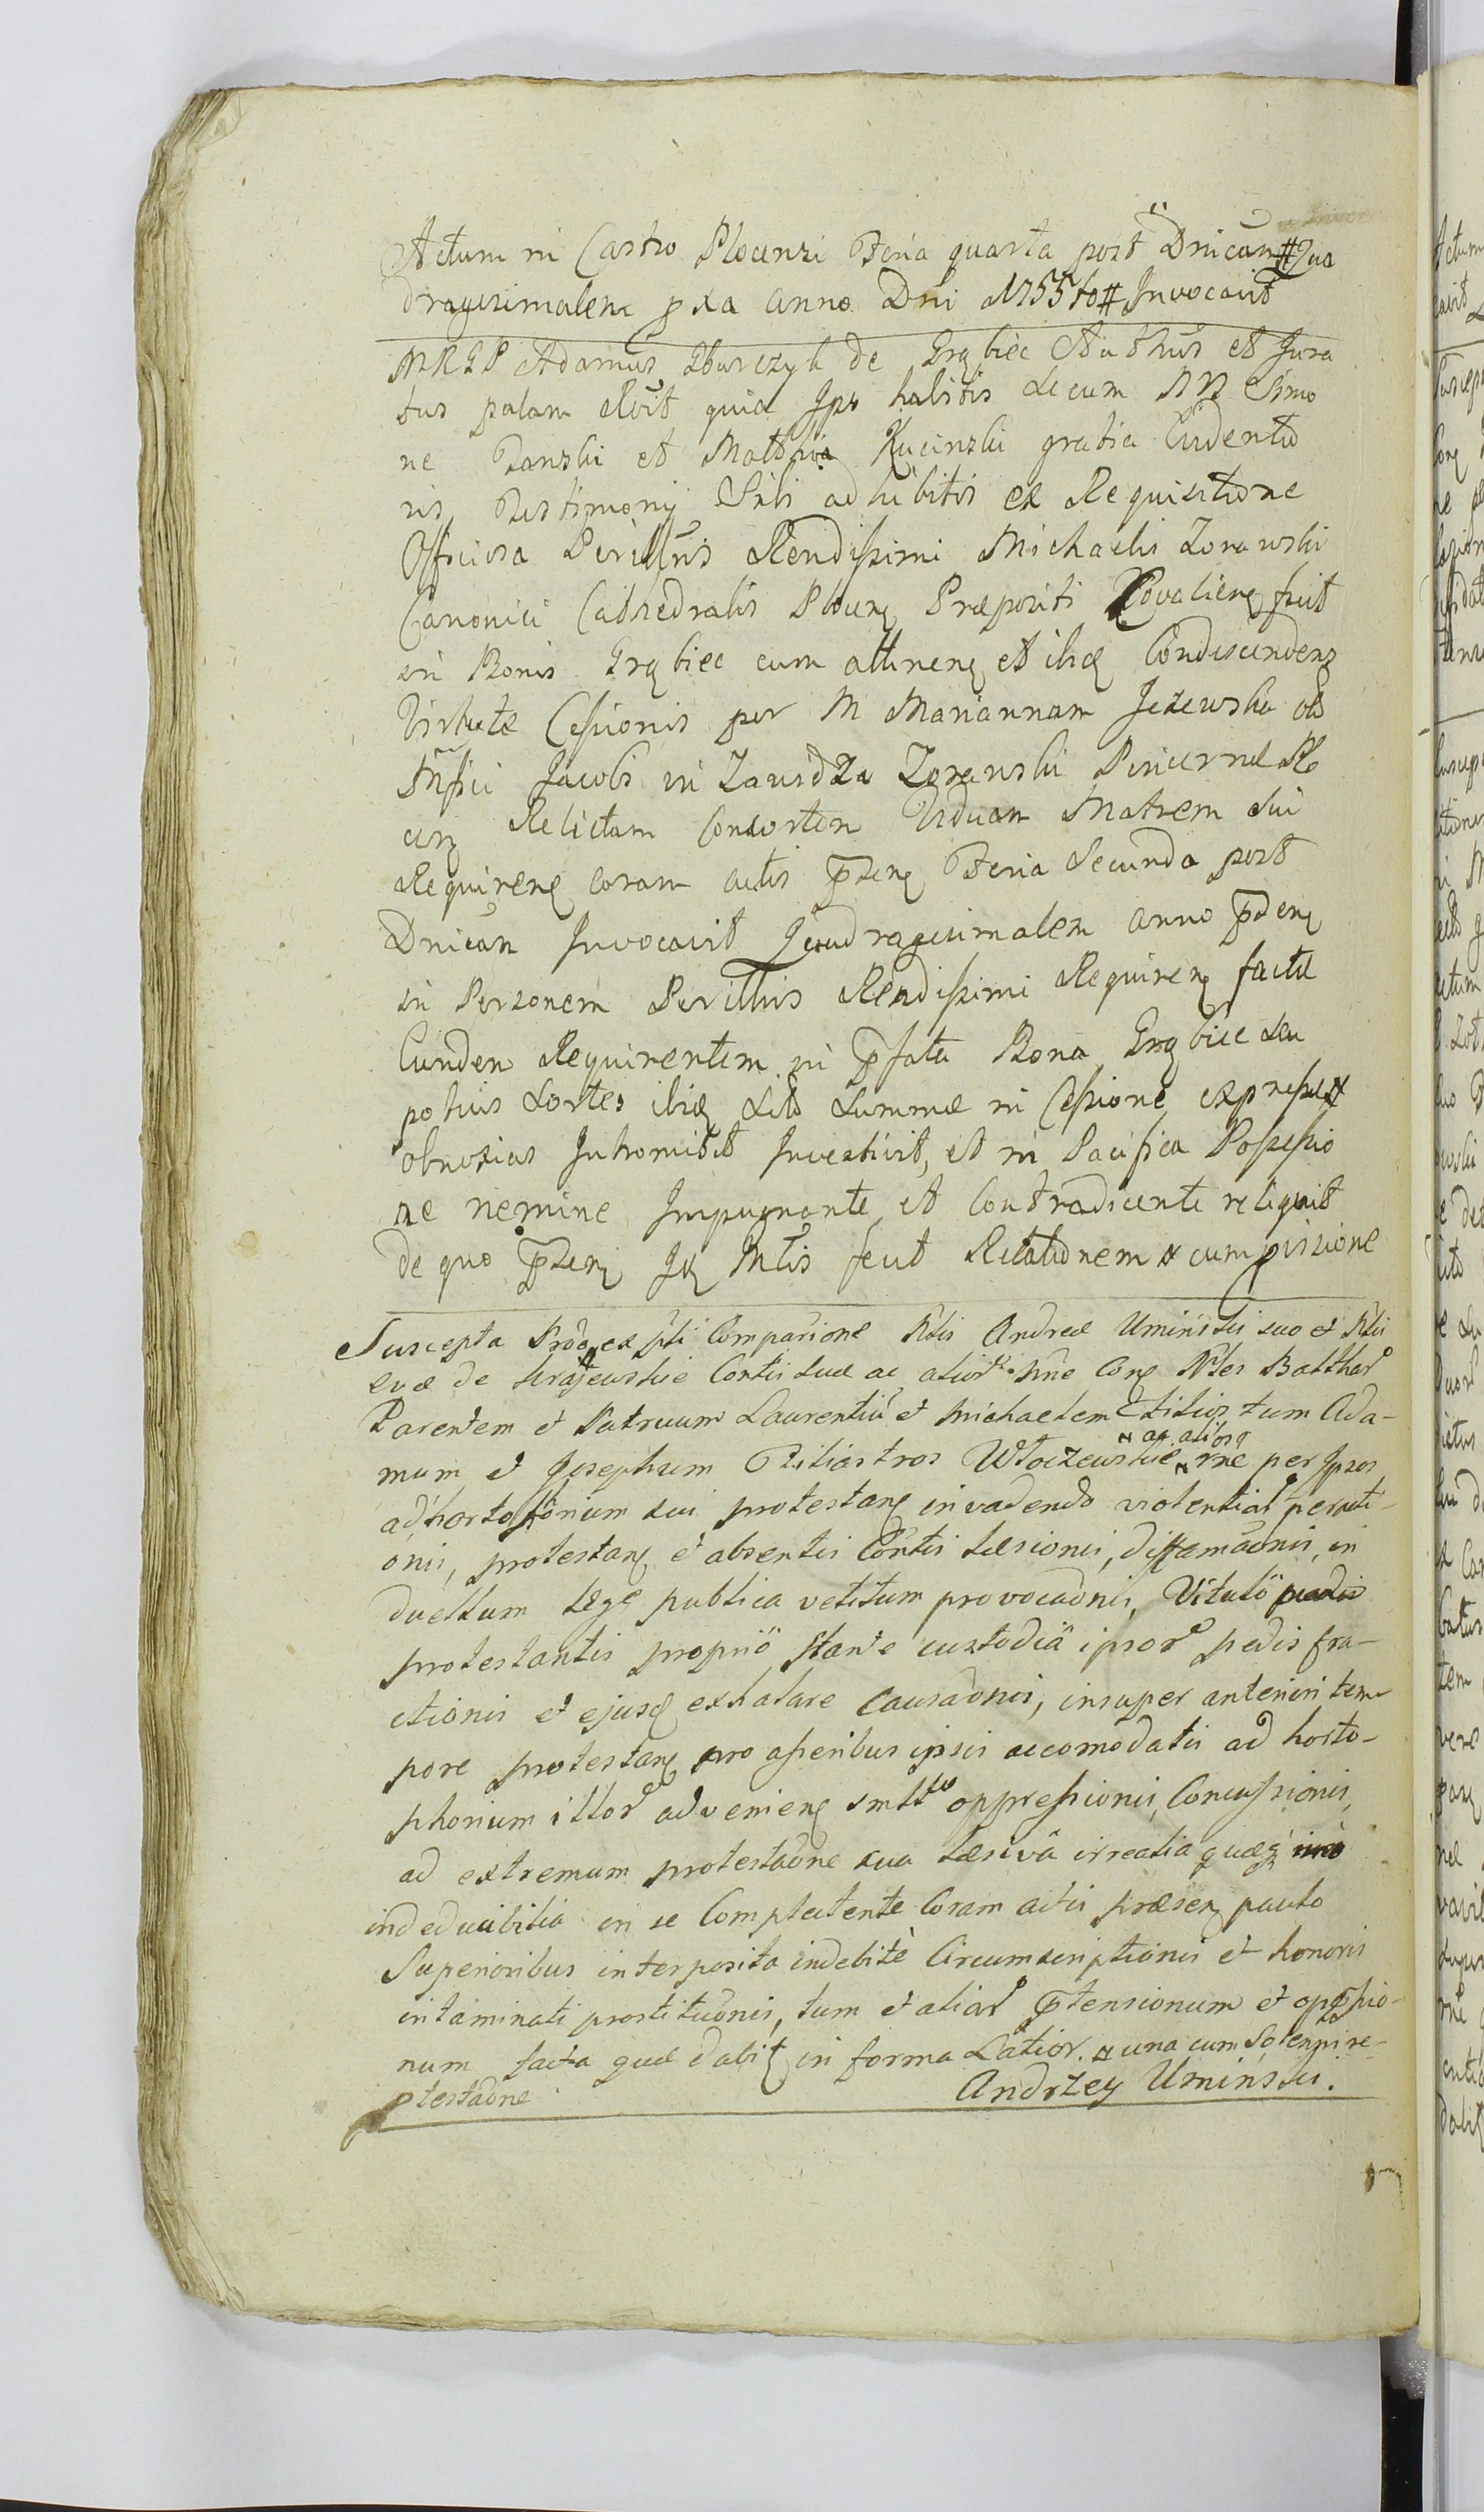 Actum in Castro Plocensi Feria quarta post Dnicam # Qua
dragesimalem pxa Anno Dni 1755to # Invocavit
MRGP Adamus Gburczyk de Grąbiec Authus et Jura
tus palam Rvit quia Ipse habitis secum NN Simo
ne Danski et Matthia Kucinski gratia Evidentio
ris Testimonij Sibi adhibitis ex Requisitione
Officiosa Perillris Rendissimi Michaelis Zorawski
Canonici Cathedralis Plocen Præpositi Kovalien fuit
in Bonis Grąbiec cum attinen et ibiq Condescendens
Virtute Cessionis per M Mariannam Jezewska ol
Mfici Jacobi in Zawidza Zorawski Pincernæ Plo
cen Relictam Consortem Viduam Matrem Sui
Requiren coram actis Pzen Feria Secunda post
Dnicam Invocavit Quadragesimalem anno Pden
in Personem Perillris Rendissimi Requiren factæ
Eundem Requirentem in Pfata Bona Grąbiec seu
potius Sortes ibiq Sitas Summæ in Cessione expressæ
obnoxias Intromisit Investivit, et in Pacifica Possessio
ne nemine Impugnante et Contradicente reliquit
de quo Pzen Jg Mtis fecit Relationem x cumpissione
Suscepta Prod ex pti Comparione Nlis Andreæ Uminski suo et Nlis
Evæ de Krajewskie Contis suæ ac alior nne Con Nles Balthar
Parentem et Patruum Laurentiu et Michaelem Filios tum Ada-
mum et Josephum Filiastros Wtoczewskie rne per Ipsos
ac alios
ad hortophonium sui protestan invadendo violential percuti-
onis, protestan et absentis Contis læsionis, diffamaonis, in
duellum lege publica vetitum provocaonis, Vitulö
protestantis propriö stante custodiä ipsor pedis fra-
ctionis et ejusq exhalare causaonis, insuper anteriori tem-
pore protestan pro asseribus ipsis accomodatis ad horto-
phonium illor advenien smltr oppressionis, Concussionis,
ad extremum protestaone sua læsivâ irrealia quæq imo
indeducibilia in se Complectente Coram actis præsen paulo
Superioribus interposita indebitè Circumscriptionis et honoris
intaminati prostituonis, tum et aliar Ptensionum et oppssio-
num facta quæ dabit in forma Latior. x una cum Solenni re-
ptestaone Andrzey Uminski.